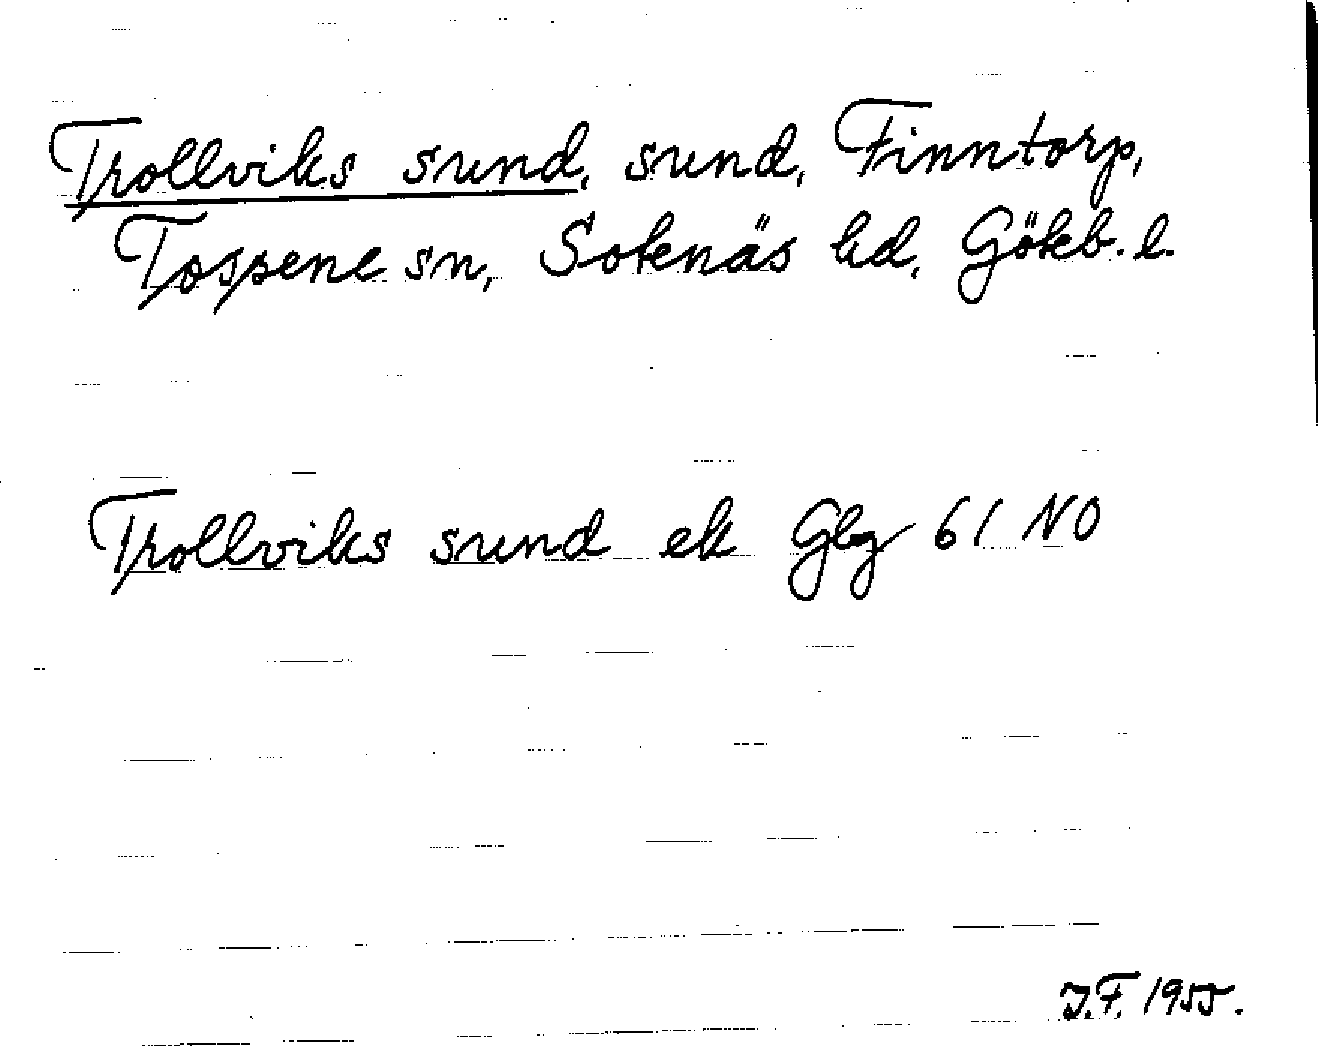 Trollviks sund, sund, Finntorp,
Tossene sn, Sotenäs hd, Gökb. l.
Trollviks sund ek Gbg 61 NO
J.F. 1955.